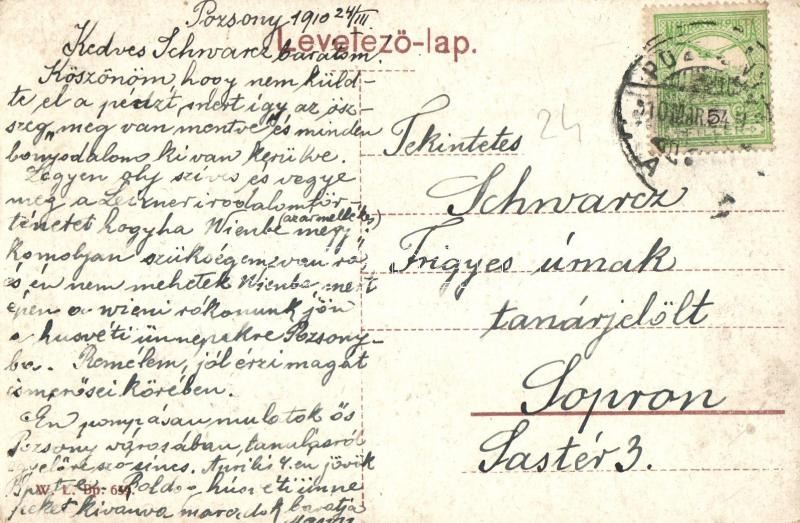 Pozsony 1910 24/III.
Levelező-lap.
Kedves Schwarcz barátom.
Köszönöm, hogy nem küld-
te el a pénzt, mert így az ösz-
szeg "meg van mentve" és minden
bonyodalom ki van kerülve.
Legyen oly szives és vegye
meg a Leixner irodalomtör-
ténetet hogyha Wienbe (azármellékes) megy.
Komolyan szükségem van rá
és én nem mehetek Wienbe mert
épen a wieni rokonunk jön
a husvéti ünnepekre Pozsony-
ba. Remélem, jól érzi magát
ismerősei körében.
Én pompásan mulatok ős
Pozsony városában, tanulásról
egyelőre szó sincs. Április 4.en jövök
Bpstre. Boldog húsvéti ünne-
peket kivánva maradok barátja
W. L. Bp.
24
Tekintetes
Schwarcz
Frigyes úrnak
tanárjelölt
Sopron
Sastér 3.